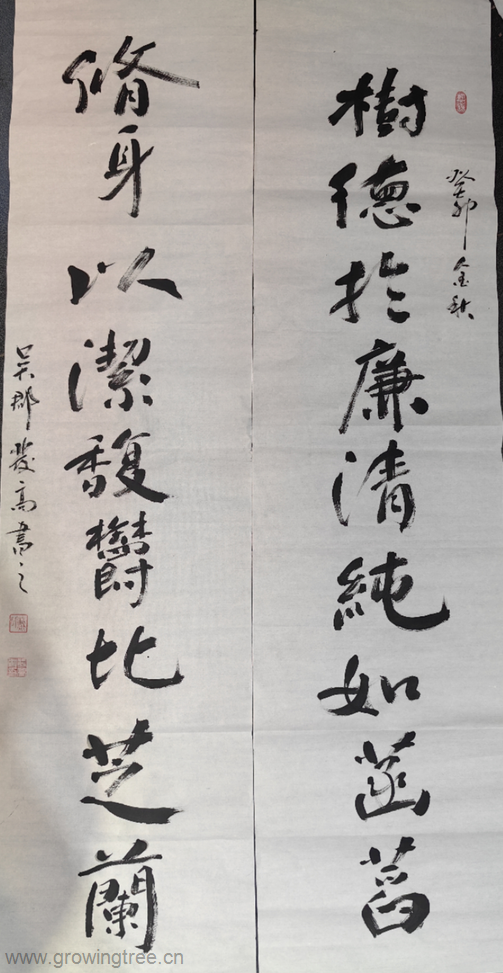 癸卯金秋
樹德於廉清純如菡萏
脩身以潔馥欝比芝蘭
吴郡發高書之
www.growingtree.cn